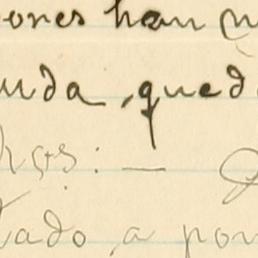 ones han
uda, qued
hos: —
tado a pon